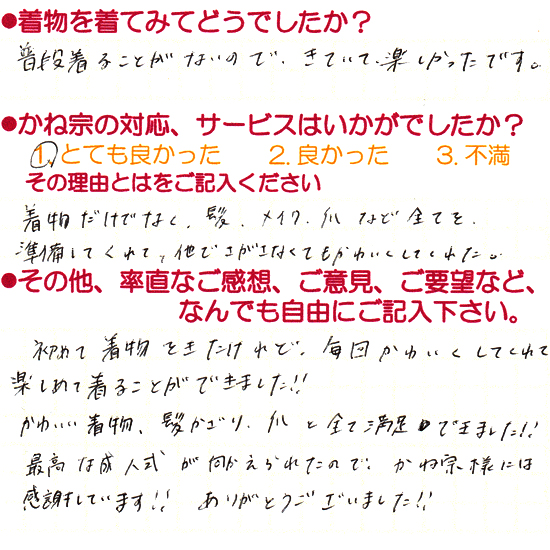 ●着物を着てみてどうでしたか？
普段着ることがないので、きていて楽しかったです。
●かね宗の対応、サービスはいかがでしたか？
1.とても良かった 2.良かった 3.不満
その理由とはをご記入ください
着物だけでなく、髪、メイク、爪など全てを
準備してくれて、他でさがさなくてもかわいくしてくれた。
●その他、率直なご感想、ご意見、ご要望など、
なんでも自由にご記入下さい。
初めて着物をきたけれど、毎回かわいくしてくれて
楽しめて着ることができました!!
かわいい着物、髪かざり、爪と全て満足できました!!
最高な成人式が向かえられたので、かね宗様には
感謝しています!! ありがとうございました!!